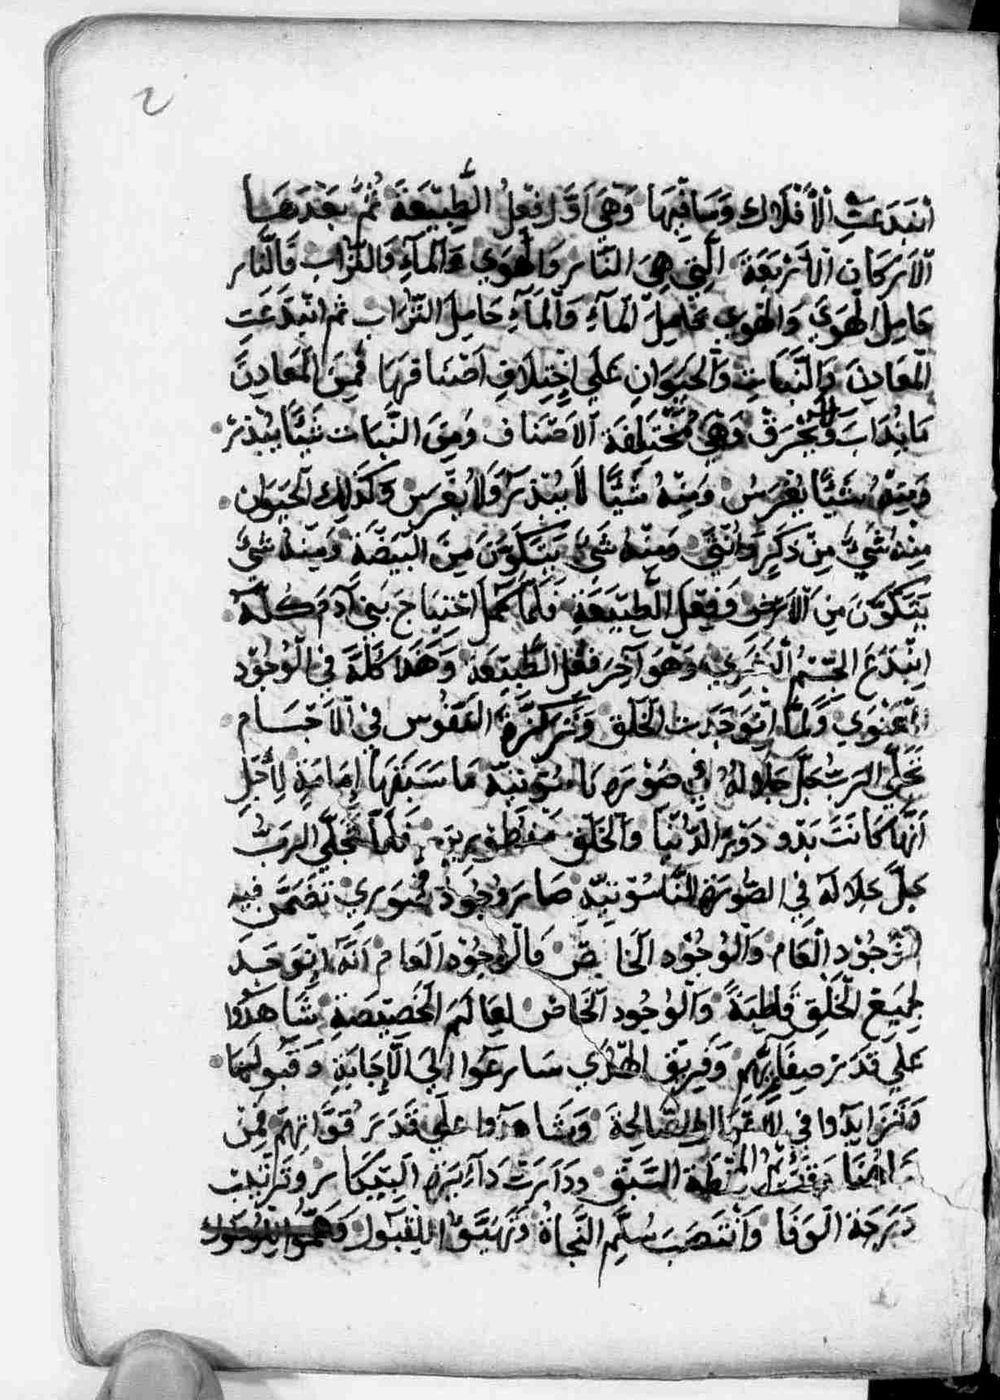 2
انبدعت الأفلاك وما فيها وهي اول فعل الطبيعة ثم بعدها
الاركان الاربعة التي هي النار والهوي والماء والتراب فالنار
حامل الهوي والهوي حامل الماء والماء حامل التراب ثم انبدعت
المعادن والنبات والحيوان علي اختلاف اصنافها فمن المعادن
ما ينداب ويحرق وهي مختلفة الاصناف ومن النبات شيئا يبذر
ومنه شيئا يغرس ومنه شيئا لا يبذر ولا يغرس وكذلك الحيوان
منه شيء من ذكر وانثي ومنه شيء يتكون من البيضة ومنه شيء
يتكون من الارض وفعل الطبيعة فلما كمل احتياج بني آدم كله
انبدع الجسم البشري وهو آخر فعل الطبيعة وهذا كله في الوجود
المعنوي ولما انوجدت الخلق وتركزة النفوس في الاجسام
تجلي الرب جل جلاله في صورة ناسوتية ما سبقها إمامة لأجل
انها كانت بدو دور الدنيا والخلق فلما تجلي الرب
جل جلاله في الصورة الناسوتية صار وجود تضمن فيه
الوجود العام والوجود الخاص فالوجود العام أنه انوجد
لجميع الخلق قاطبة والوجود الخاص لعالم الخصيصة شاهدوا
علي قدر صفايهم وفريق الهدي سارعوا الي الاجابة وقبولها
وتزايدوا في الاعمال الصالحة وشاهدوا علي قدر قواتهم فمن
السبق ودارت دايرة البيكار وترتبت
درجة الوفا وانتصب سلم النجاة وتهيؤ للقبول